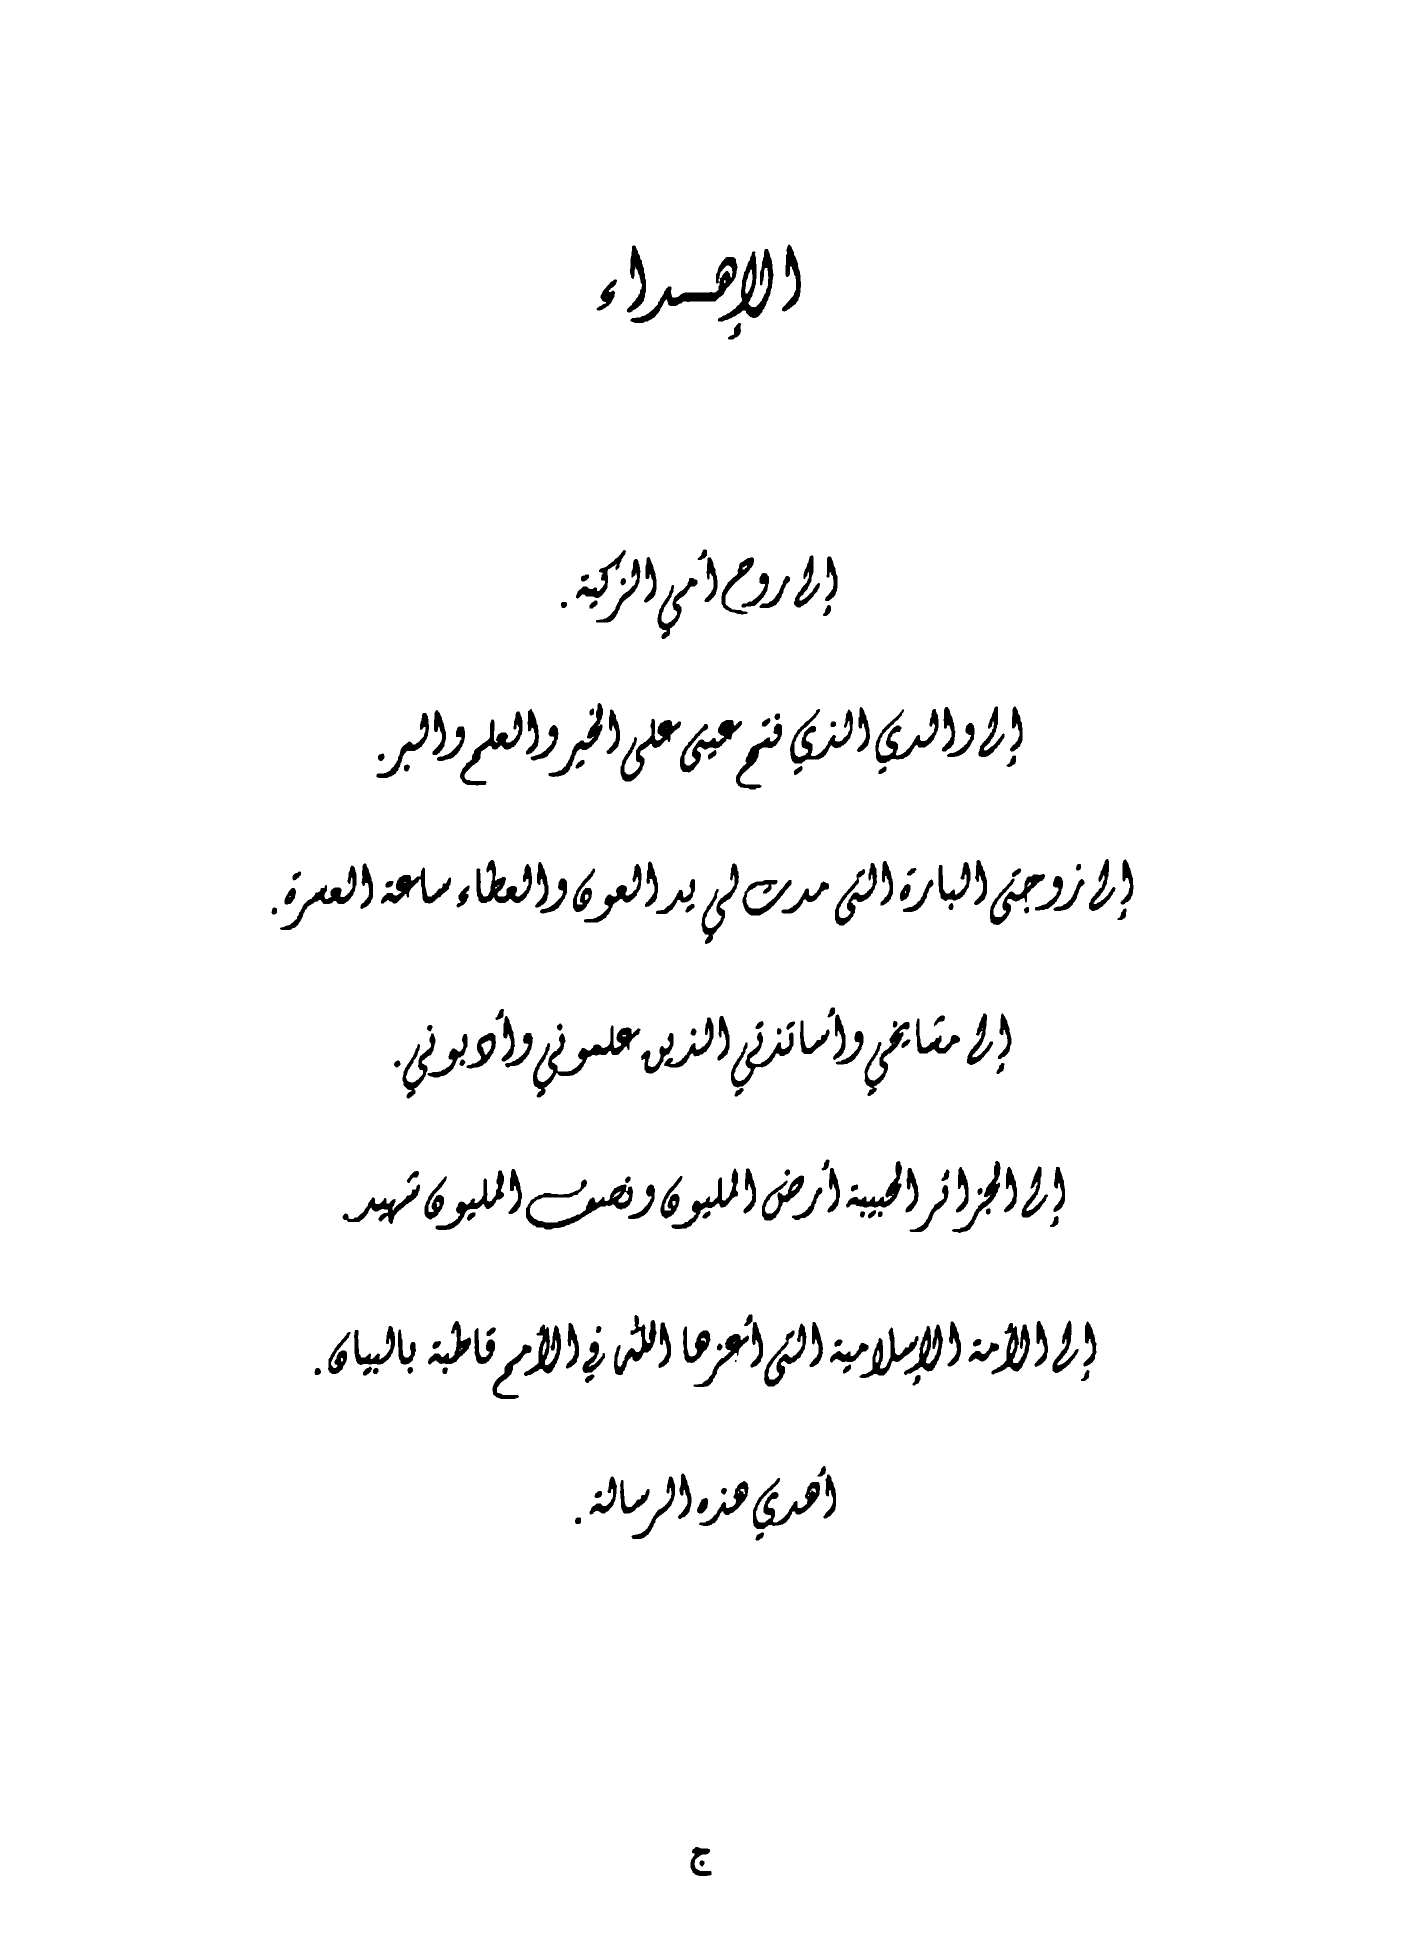 الإهــداء
إلى روح أمي الزكية .
إلى والدي الذي فتح عيني على الخير والعلم والبر.
إلى زوجتي البارة التي مدت لي يد العون والعطاء ساعة العسرة.
إلى مشايخي وأساتذتي الذين علموني وأدبوني.
إلى الجزائر الحبيبة أرض المليون ونصف المليون شهيد.
إلى الأمة الإسلامية التي أعزها الله في الأمم قاطبة بالبيان.
أهدي هذه الرسالة .
ج